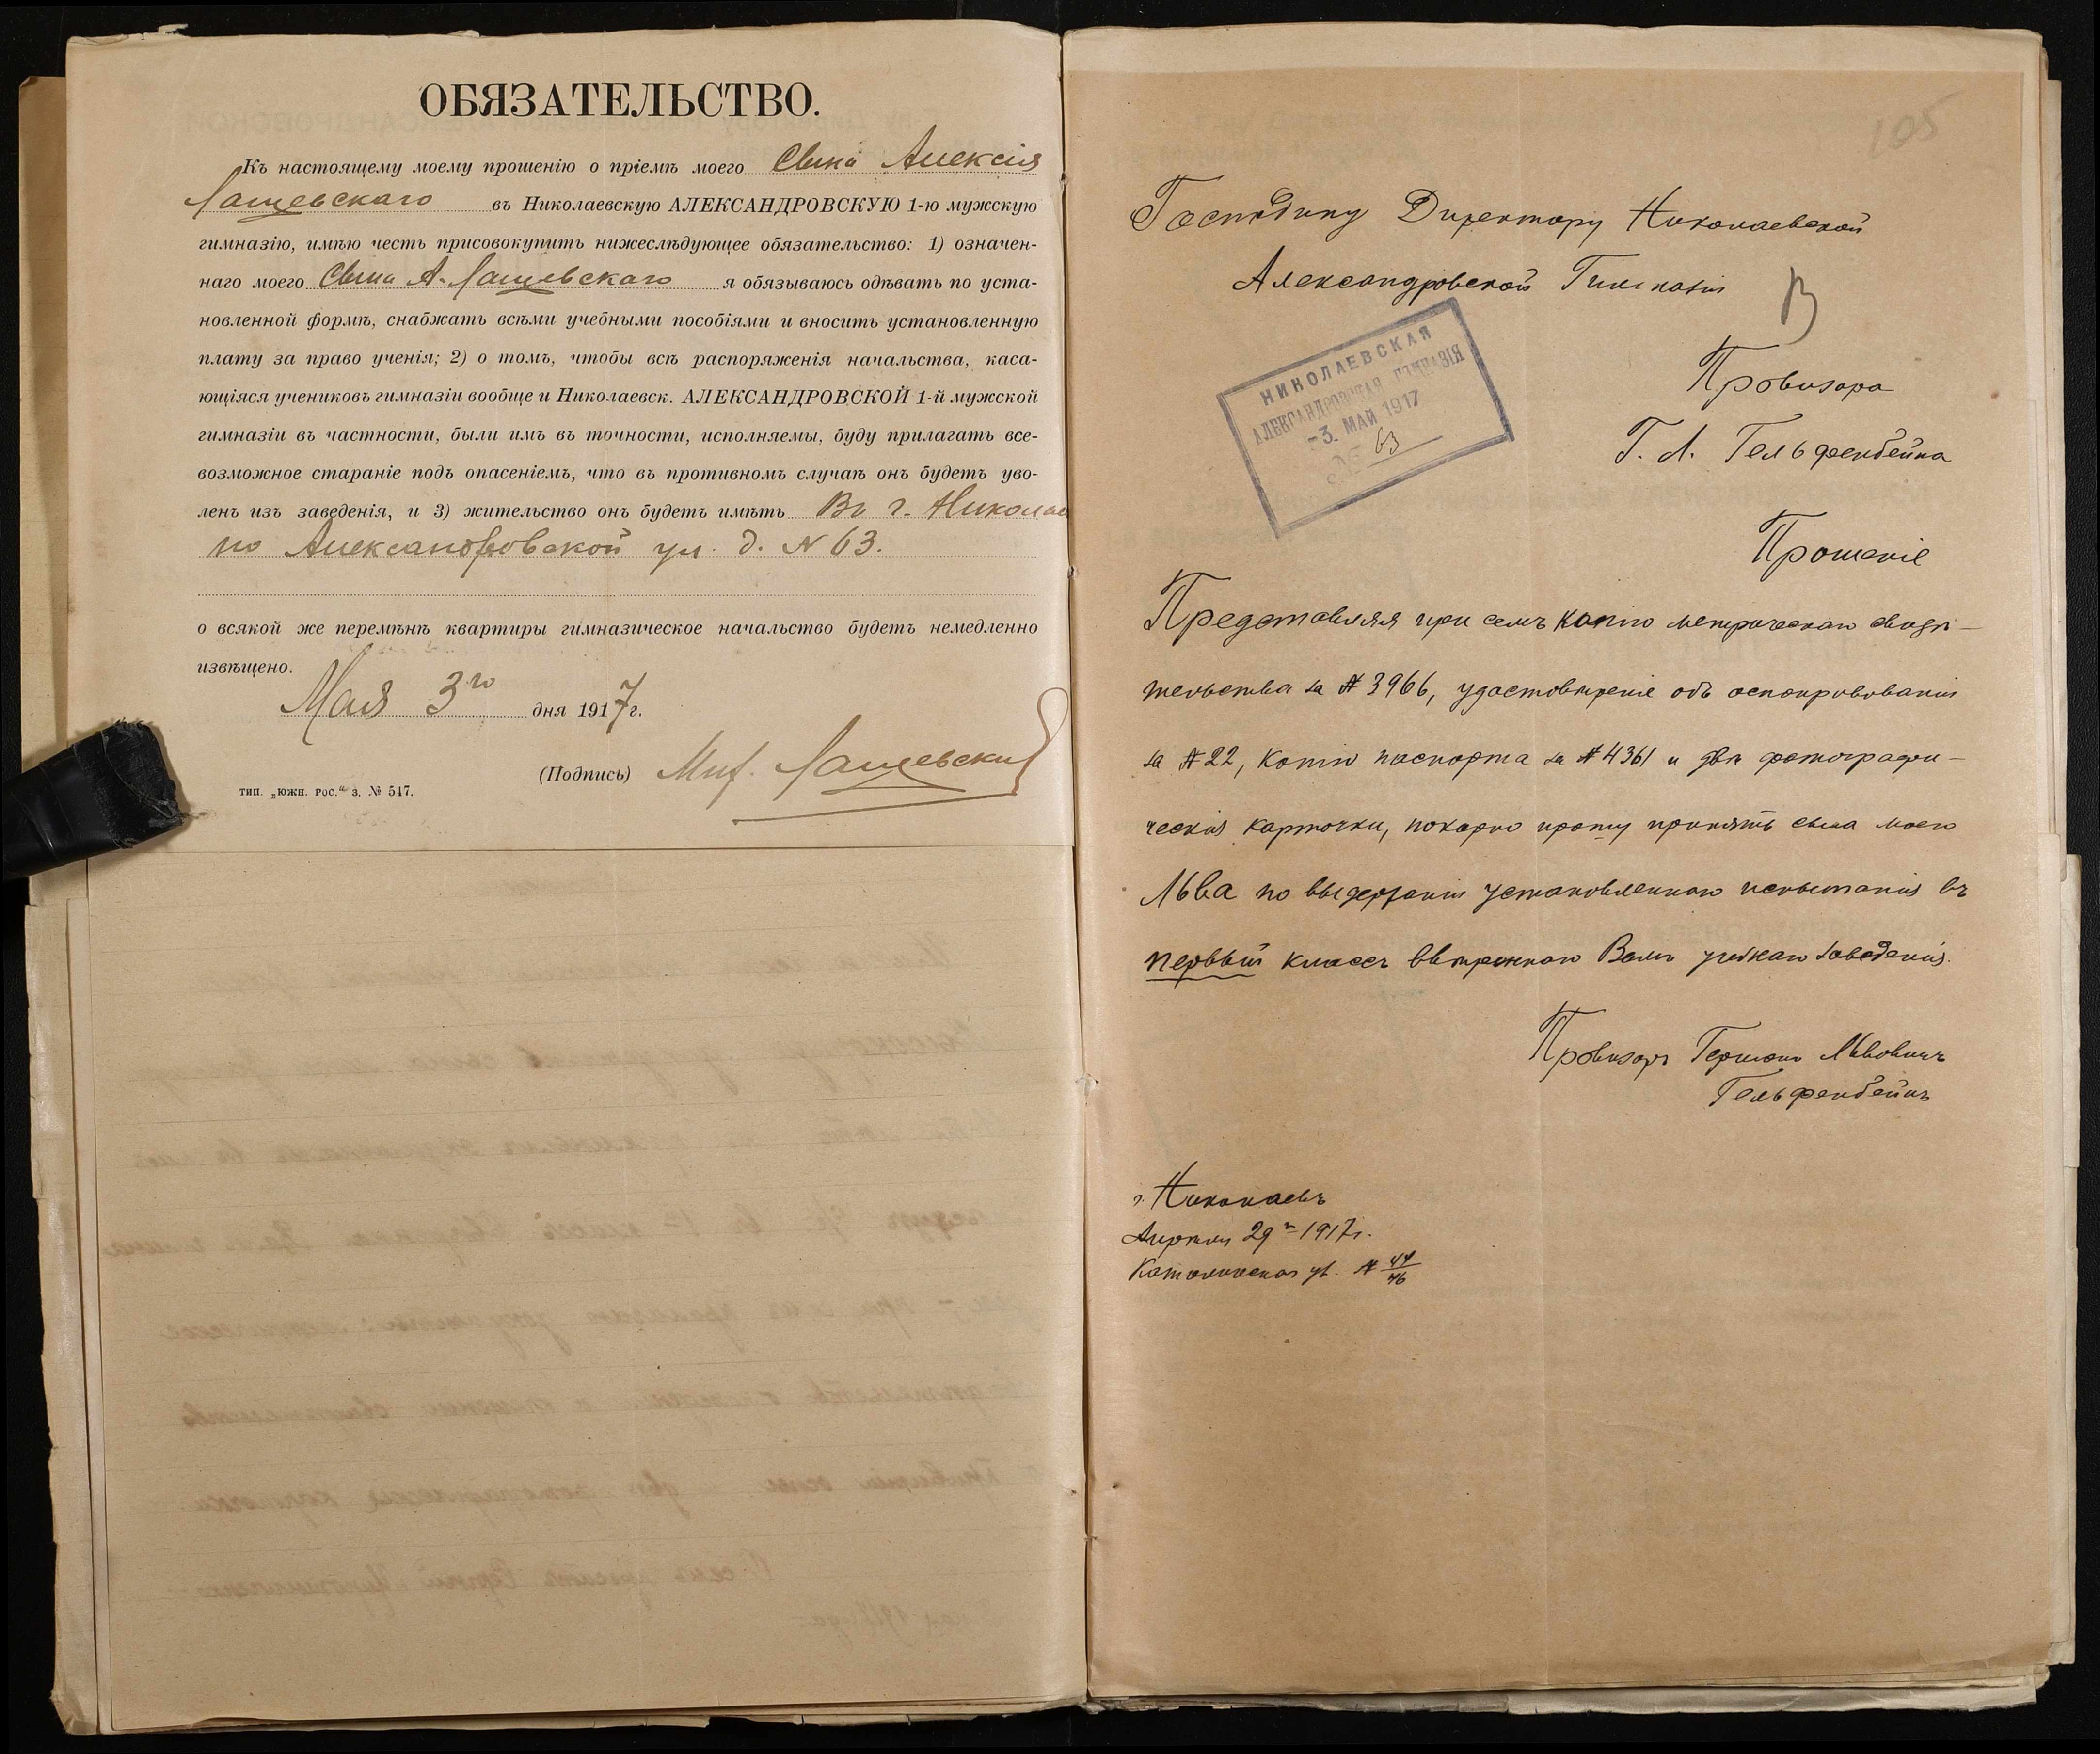 ОБЯЗАТЕЛЬСТВО.
Къ настоящему моему прошенію о пріемѣ моего Сына Алексія
Лащевскаго въ Николаевскую АЛЕКСАНДРОВСКУЮ 1-ю мужскую
гимназію, имѣю честь присовокупить нижеслѣдующее обязательство: 1) означен-
наго моего Сына А. Лащевскаго я обязываюсь одѣвать по уста-
новленной формѣ, снабжать всѣми учебными пособіями и вносить установленную
плату за право ученія; 2) о томъ, чтобы всѣ распоряженія начальства, каса-
ющіяся учениковъ гимназіи вообще и Николаевск. АЛЕКСАНДРОВСКОЙ 1-й мужской
гимназіи въ частности, были имъ въ точности, исполняемы, буду прилагать все-
возможное стараніе подъ опасеніемъ, что въ противномъ случаѣ онъ будетъ уво-
ленъ изъ заведенія, и 3) жительство онъ будетъ имѣть Въ г. Николае
по Александровской ул. д. № 63.
о всякой же перемѣнѣ квартиры гимназическое начальство будетъ немедленно
извѣщено.
Мая 3го дня 1917 г.
(Подпись) Мит. Лащевский
тип. „южн. рос.“ з. № 547.
105
Господину Директору Николаевской
Александровской Гимназіи
В
НИКОЛАЕВСКАЯ
АЛЕКСАНДРОВСКАЯ ГИМНАЗІЯ
-3. МАЙ 1917
№ 63
Провизора
Г. Л. Гельфенбейна
Прошеніе
Представляя при семъ копію метрическаго свидѣ-
тельства за № 3966, удостовѣреніе объ оспопрививаніи
за № 22, копію паспорта за № 4361 и двѣ фотографи-
ческія карточки, покорно прошу принять сына моего
Льва по выдержаніи установленнаго испытанія въ
первый классъ ввѣреннаго Вамъ учебнаго заведенія.
Провизоръ Германъ Львовичъ
Гельфенбейнъ
г. Николаевъ
Апрѣля 29го 1917 г.
Католическая ул. № 44/46